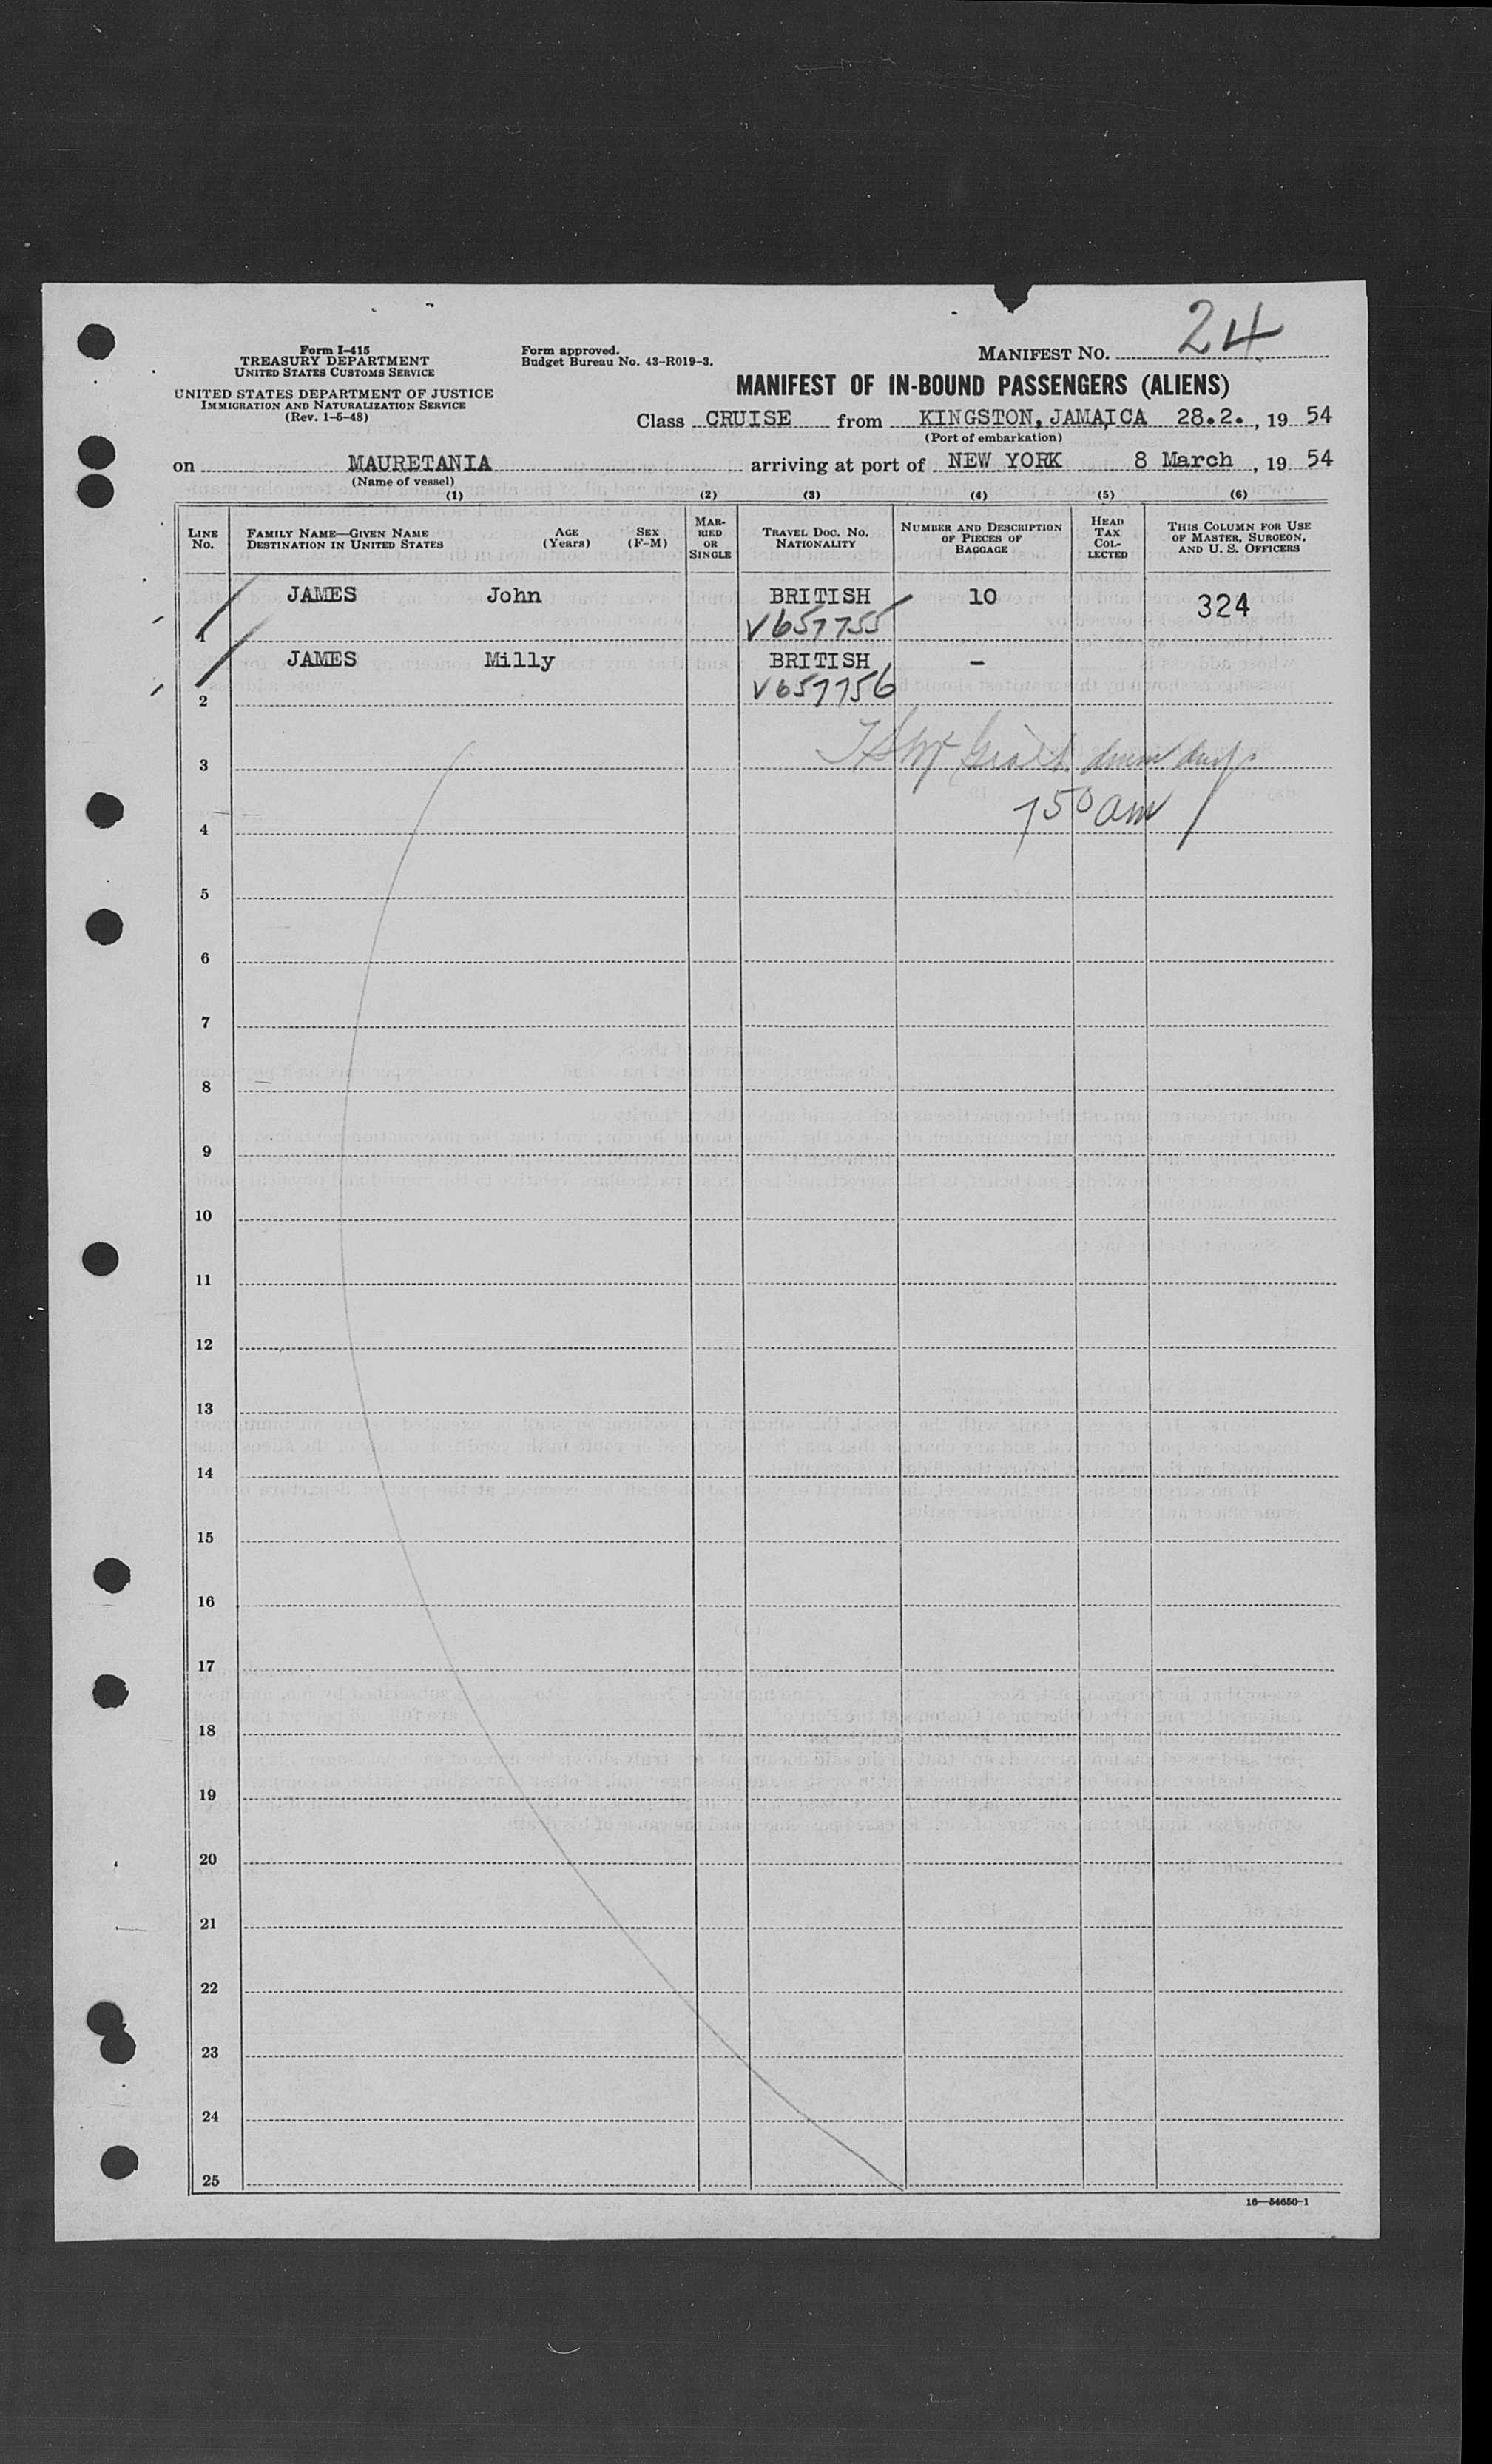 24
Form I-415
TREASURY DEPARTMENT
UNITED STATES CUSTOMS SERVICE
UNITED STATES DEPARTMENT OF JUSTICE
IMMIGRATION AND NATURALIZATION SERVICE
(Rev. 1-5-48)
Form approved.
Budget Bureau No. 43-R019-3.
MANIFEST NO.
MANIFEST OF IN-BOUND PASSENGERS (ALIENS)
Class CRUISE from KINGSTON, JAMAICA 28.2., 19 54
(Port of embarkation)
on MAURETANIA arriving at port of NEW YORK 8 March, 19 54
(Name of vessel)
(1) (2) (3) (4) (5) (6)
LINE NO.
FAMILY NAME—GIVEN NAME
DESTINATION IN UNITED STATES
AGE (Years)
SEX (F-M)
MARRIED OR SINGLE
TRAVEL DOC. NO.
NATIONALITY
NUMBER AND DESCRIPTION OF PIECES OF BAGGAGE
HEAD TAX COLLECTED
THIS COLUMN FOR USE OF MASTER, SURGEON, AND U. S. OFFICERS
JAMES John BRITISH 10 324
1 V657755
JAMES Milly BRITISH -
2 V657756
3
750 am
4
5
6
7
8
9
10
11
12
13
14
15
16
17
18
19
20
21
22
23
24
25
16—54650-1